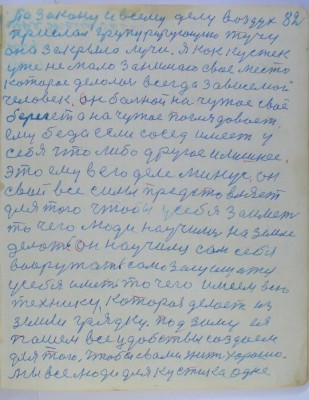 По закону и всему делу воздух 82
прислал группирующую тучу
она закрыла лучи. Я как кустек
уже не мало занимаю свое место
которое делалося всегда зависемой
человек. он больной на чужое своё
берегет а на чужое поглядовает.
ему беда если сосед имеет у
себя что либо другое илишнее.
Это ему в его деле минус, он
свои все силы представляет
для того чтобы у себя заиметь
то чего люди научилис на земле
делать. он научился сам себя
вооружать само защищать
у себя иметь то чего имеем всю
технику, которая делает из
земли грядку. под зиму ея
пашем все удобства создаем
для того, чтобы с вами жить хорошо.
Мы все люди для кустика одне